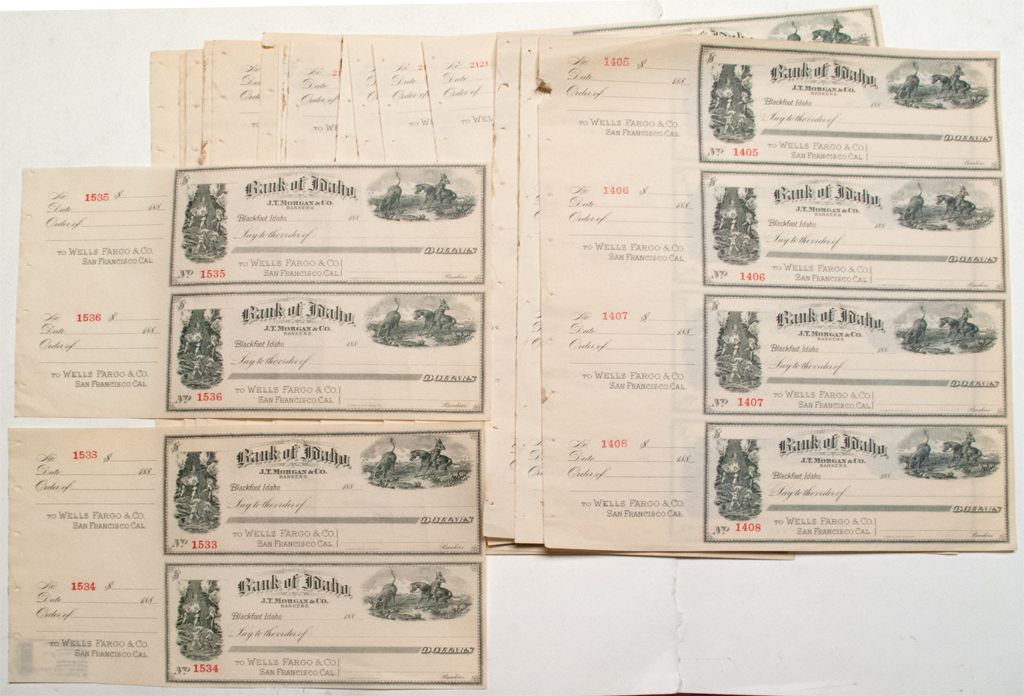 No. 1535 $
Date 188
Order of
TO WELLS FARGO & CO.
SAN FRANCISCO CAL
$
Bank of Idaho,
J.T. MORGAN & CO.
BANKERS
Blackfoot, Idaho 188
Pay to the order of
DOLLARS
TO WELLS FARGO & CO.
SAN FRANCISCO CAL.
No. 1535
Bankers
No. 1536 $
Date 188
Order of
TO WELLS FARGO & CO.
SAN FRANCISCO CAL.
$
Bank of Idaho,
J.T. MORGAN & CO.
BANKERS
Blackfoot, Idaho 188
Pay to the order of
DOLLARS
TO WELLS FARGO & CO.
SAN FRANCISCO CAL.
No. 1536
Bankers
No. 1533 $
Date 188
Order of
TO WELLS FARGO & CO.
SAN FRANCISCO CAL.
$
Bank of Idaho,
J.T. MORGAN & CO.
BANKERS
Blackfoot, Idaho 188
Pay to the order of
DOLLARS
TO WELLS FARGO & CO.
SAN FRANCISCO CAL.
No. 1533
Bankers
No. 1534 $
Date 188
Order of
TO WELLS FARGO & CO.
SAN FRANCISCO CAL.
$
Bank of Idaho,
J.T. MORGAN & CO.
BANKERS
Blackfoot, Idaho 188
Pay to the order of
DOLLARS
TO WELLS FARGO & CO.
SAN FRANCISCO CAL.
No. 1534
Bankers
No. 21
Date
Order of
TO W
No. 21
Date
Order of
TO W
No. 2121
Date
Order of
TO WEL
No. 1405 $
Date 188
Order of
TO WELLS FARGO & CO.
SAN FRANCISCO CAL
$
Bank of Idaho,
J.T. MORGAN & CO.
BANKERS
Blackfoot, Idaho 188
Pay to the order of
DOLLARS
TO WELLS FARGO & CO.
SAN FRANCISCO CAL.
No. 1405
Bankers
No. 1406 $
Date 188
Order of
TO WELLS FARGO & CO.
SAN FRANCISCO CAL.
$
Bank of Idaho,
J.T. MORGAN & CO.
BANKERS
Blackfoot, Idaho 188
Pay to the order of
DOLLARS
TO WELLS FARGO & CO.
SAN FRANCISCO CAL.
No. 1406
Bankers
No. 1407 $
Date 188
Order of
TO WELLS FARGO & CO.
SAN FRANCISCO CAL.
$
Bank of Idaho,
J.T. MORGAN & CO.
BANKERS
Blackfoot, Idaho 188
Pay to the order of
DOLLARS
TO WELLS FARGO & CO.
SAN FRANCISCO CAL.
No. 1407
Bankers
No. 1408 $
Date 188
Order of
TO WELLS FARGO & CO.
SAN FRANCISCO CAL.
$
Bank of Idaho,
J.T. MORGAN & CO.
BANKERS
Blackfoot, Idaho 188
Pay to the order of
DOLLARS
TO WELLS FARGO & CO.
SAN FRANCISCO CAL.
No. 1408
Bankers